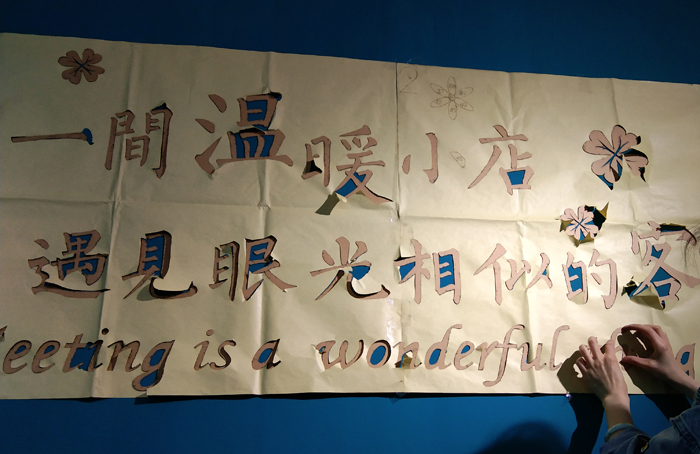 一間温暖小店
遇見眼光相似的客
eeting is a wonderful